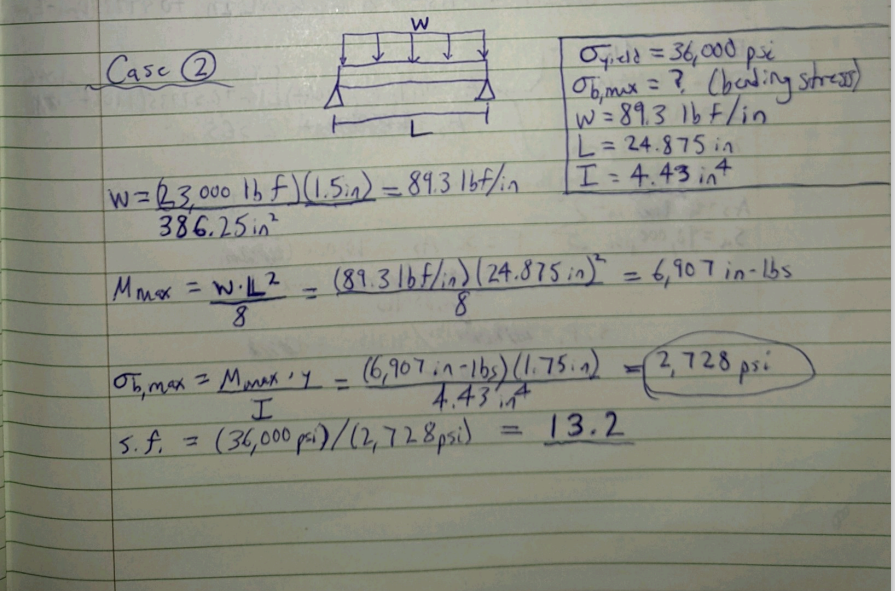 Case ②
W
L
σyield = 36,000 psi
σb,max = ? (bending stress)
W = 89.3 lbf/in
L = 24.875 in
I = 4.43 in⁴
W = (23,000 lbf)(1.5in) / 386.25in² = 89.3 lbf/in
Mmax = W·L² / 8 = (89.3 lbf/in)(24.875 in)² / 8 = 6,907 in-lbs
σb,max = Mmax·y / I = (6,907 in-lbs)(1.75in) / 4.43 in⁴ = 2,728 psi
s.f. = (36,000 psi)/(2,728psi) = 13.2